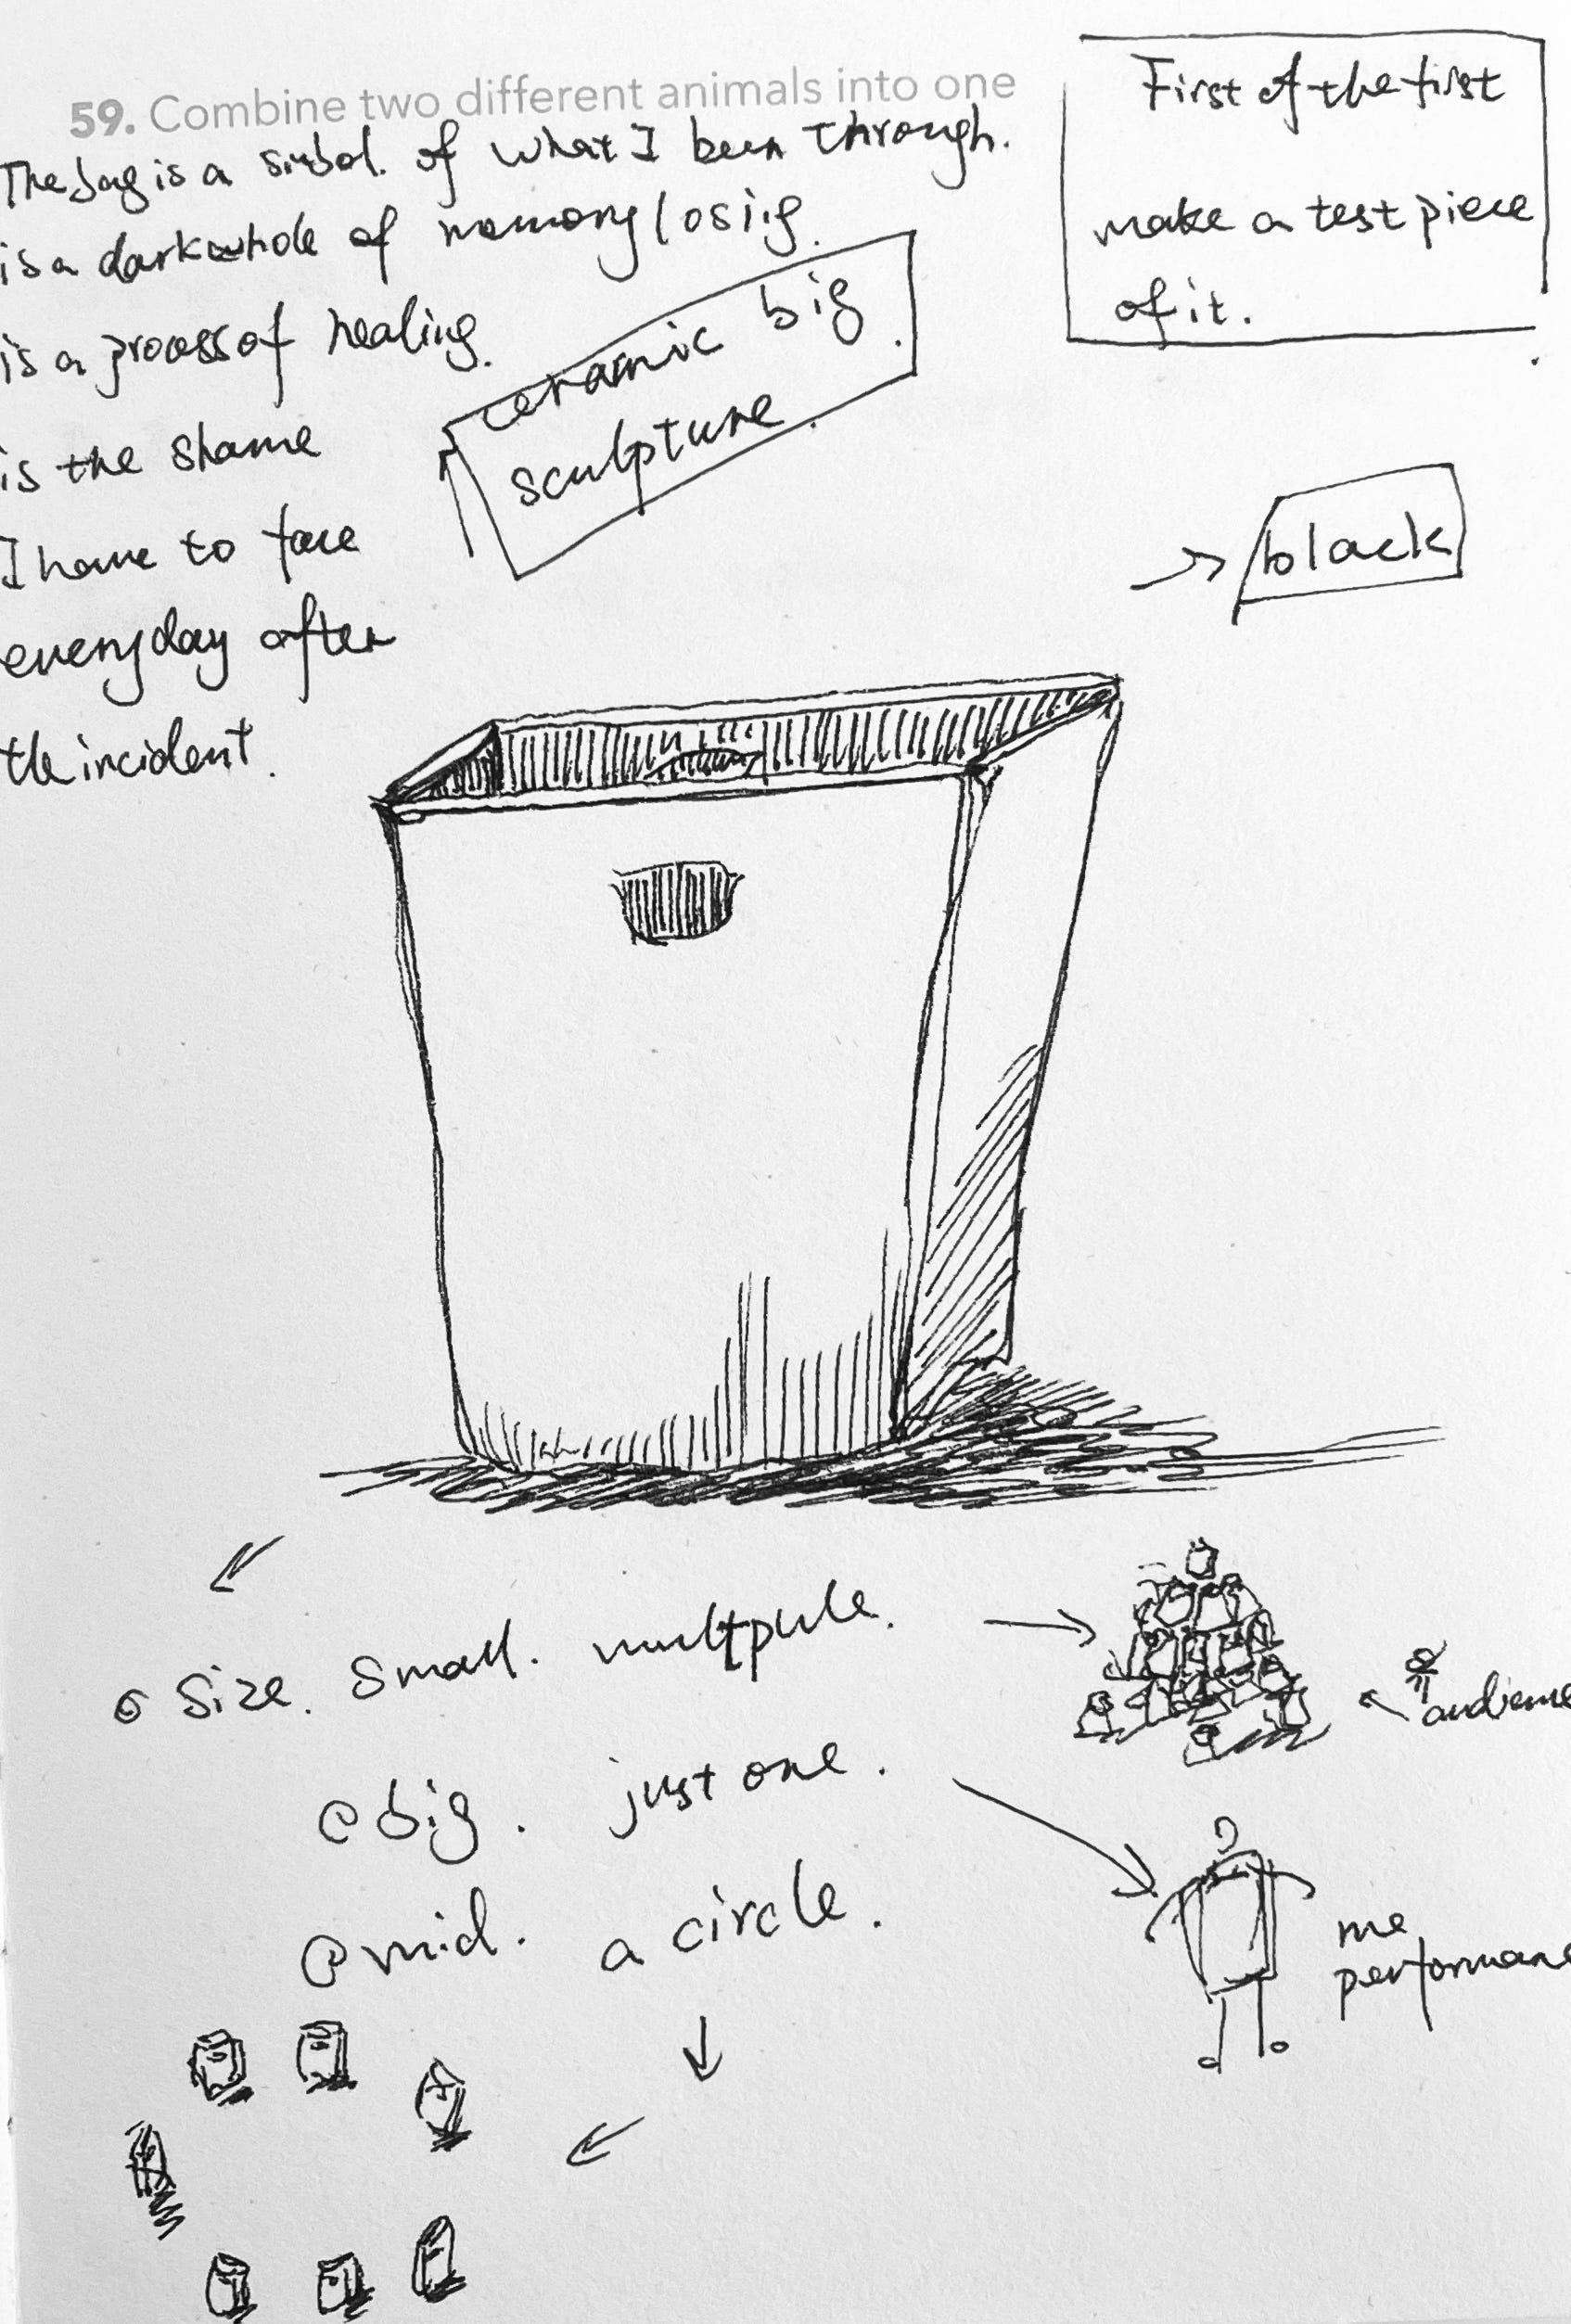 59. Combine two different animals into one
The bag is a simbol. of what I been through.
is a dark whole of memory losig.
is a process of healing.
is the shame
I have to face
everyday after
the incident.
First of the first
make a test piece
of it.
ceramic big
sculpture.
black
Size. Small. multpule.
audience
big. just one.
mid. a circle.
me
performane